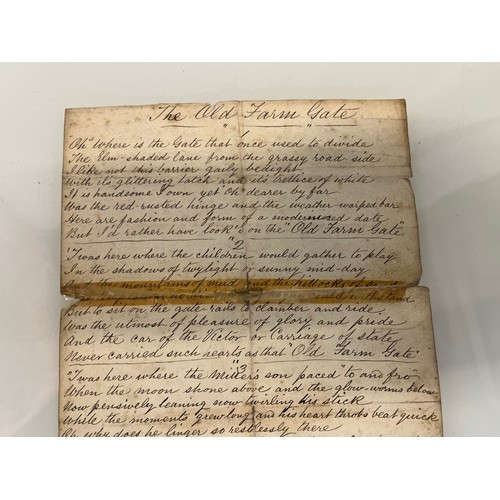 The Old Farm Gate
1
"Oh" Where is the Gate that once used to divide
The Elm-shaded lane from the grassy road side
I like not this barrier gaily bedight
With its glittering latch and its trellice of white
It is handsome I own yet "Oh" dearer by far
Was the red-rusted hinge and the weather-warped bar
Here are fashion and form of a modernised date
But I'd rather have look'd on the "Old Farm Gate"
2
'Twas here where the children would gather to play
In the shadows of twylight or sunny mid-day
And the mountains of mud and the hillocks of
But to sit on the gate rails to clamber and ride
Was the utmost of pleasure of glory and pride
And the car of the Victor or Carriage of state
Never carried such hearts as that "Old Farm Gate"
3
'Twas here where the Miller's son paced to and fro
When the moon shone above and the glow-worms below
Now pensively leaning now twirling his stick
While the moments grew long and his heart throbs beat quick
Oh why does he linger so restlessly there